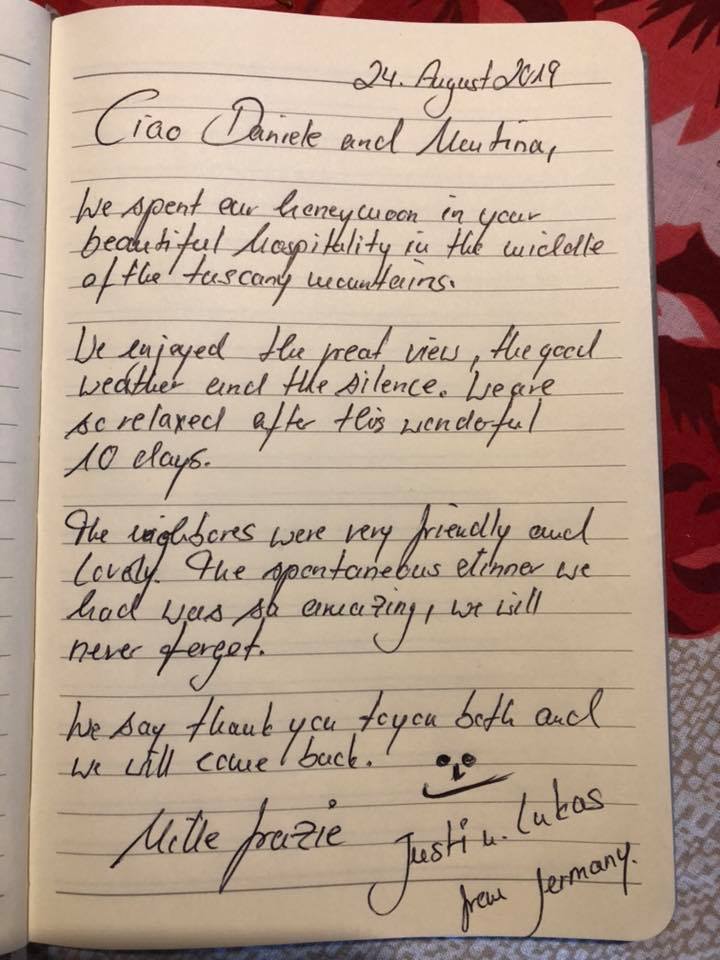 24. August 2019
Ciao Daniele and Mentina,
We spent our honeymoon in your
beautiful hospitality in the middle
of the tuscany mountains.
We enjoyed the great view, the good
weather and the silence. We are
so relaxed after this wonderful
10 days.
The nighbores were very friendly and
lovely. The spontaneous dinner we
had was so amazing, we will
never forget.
We say thank you to you both and
we will come back.
Mille grazie
Justi u. Lukas
from Germany.